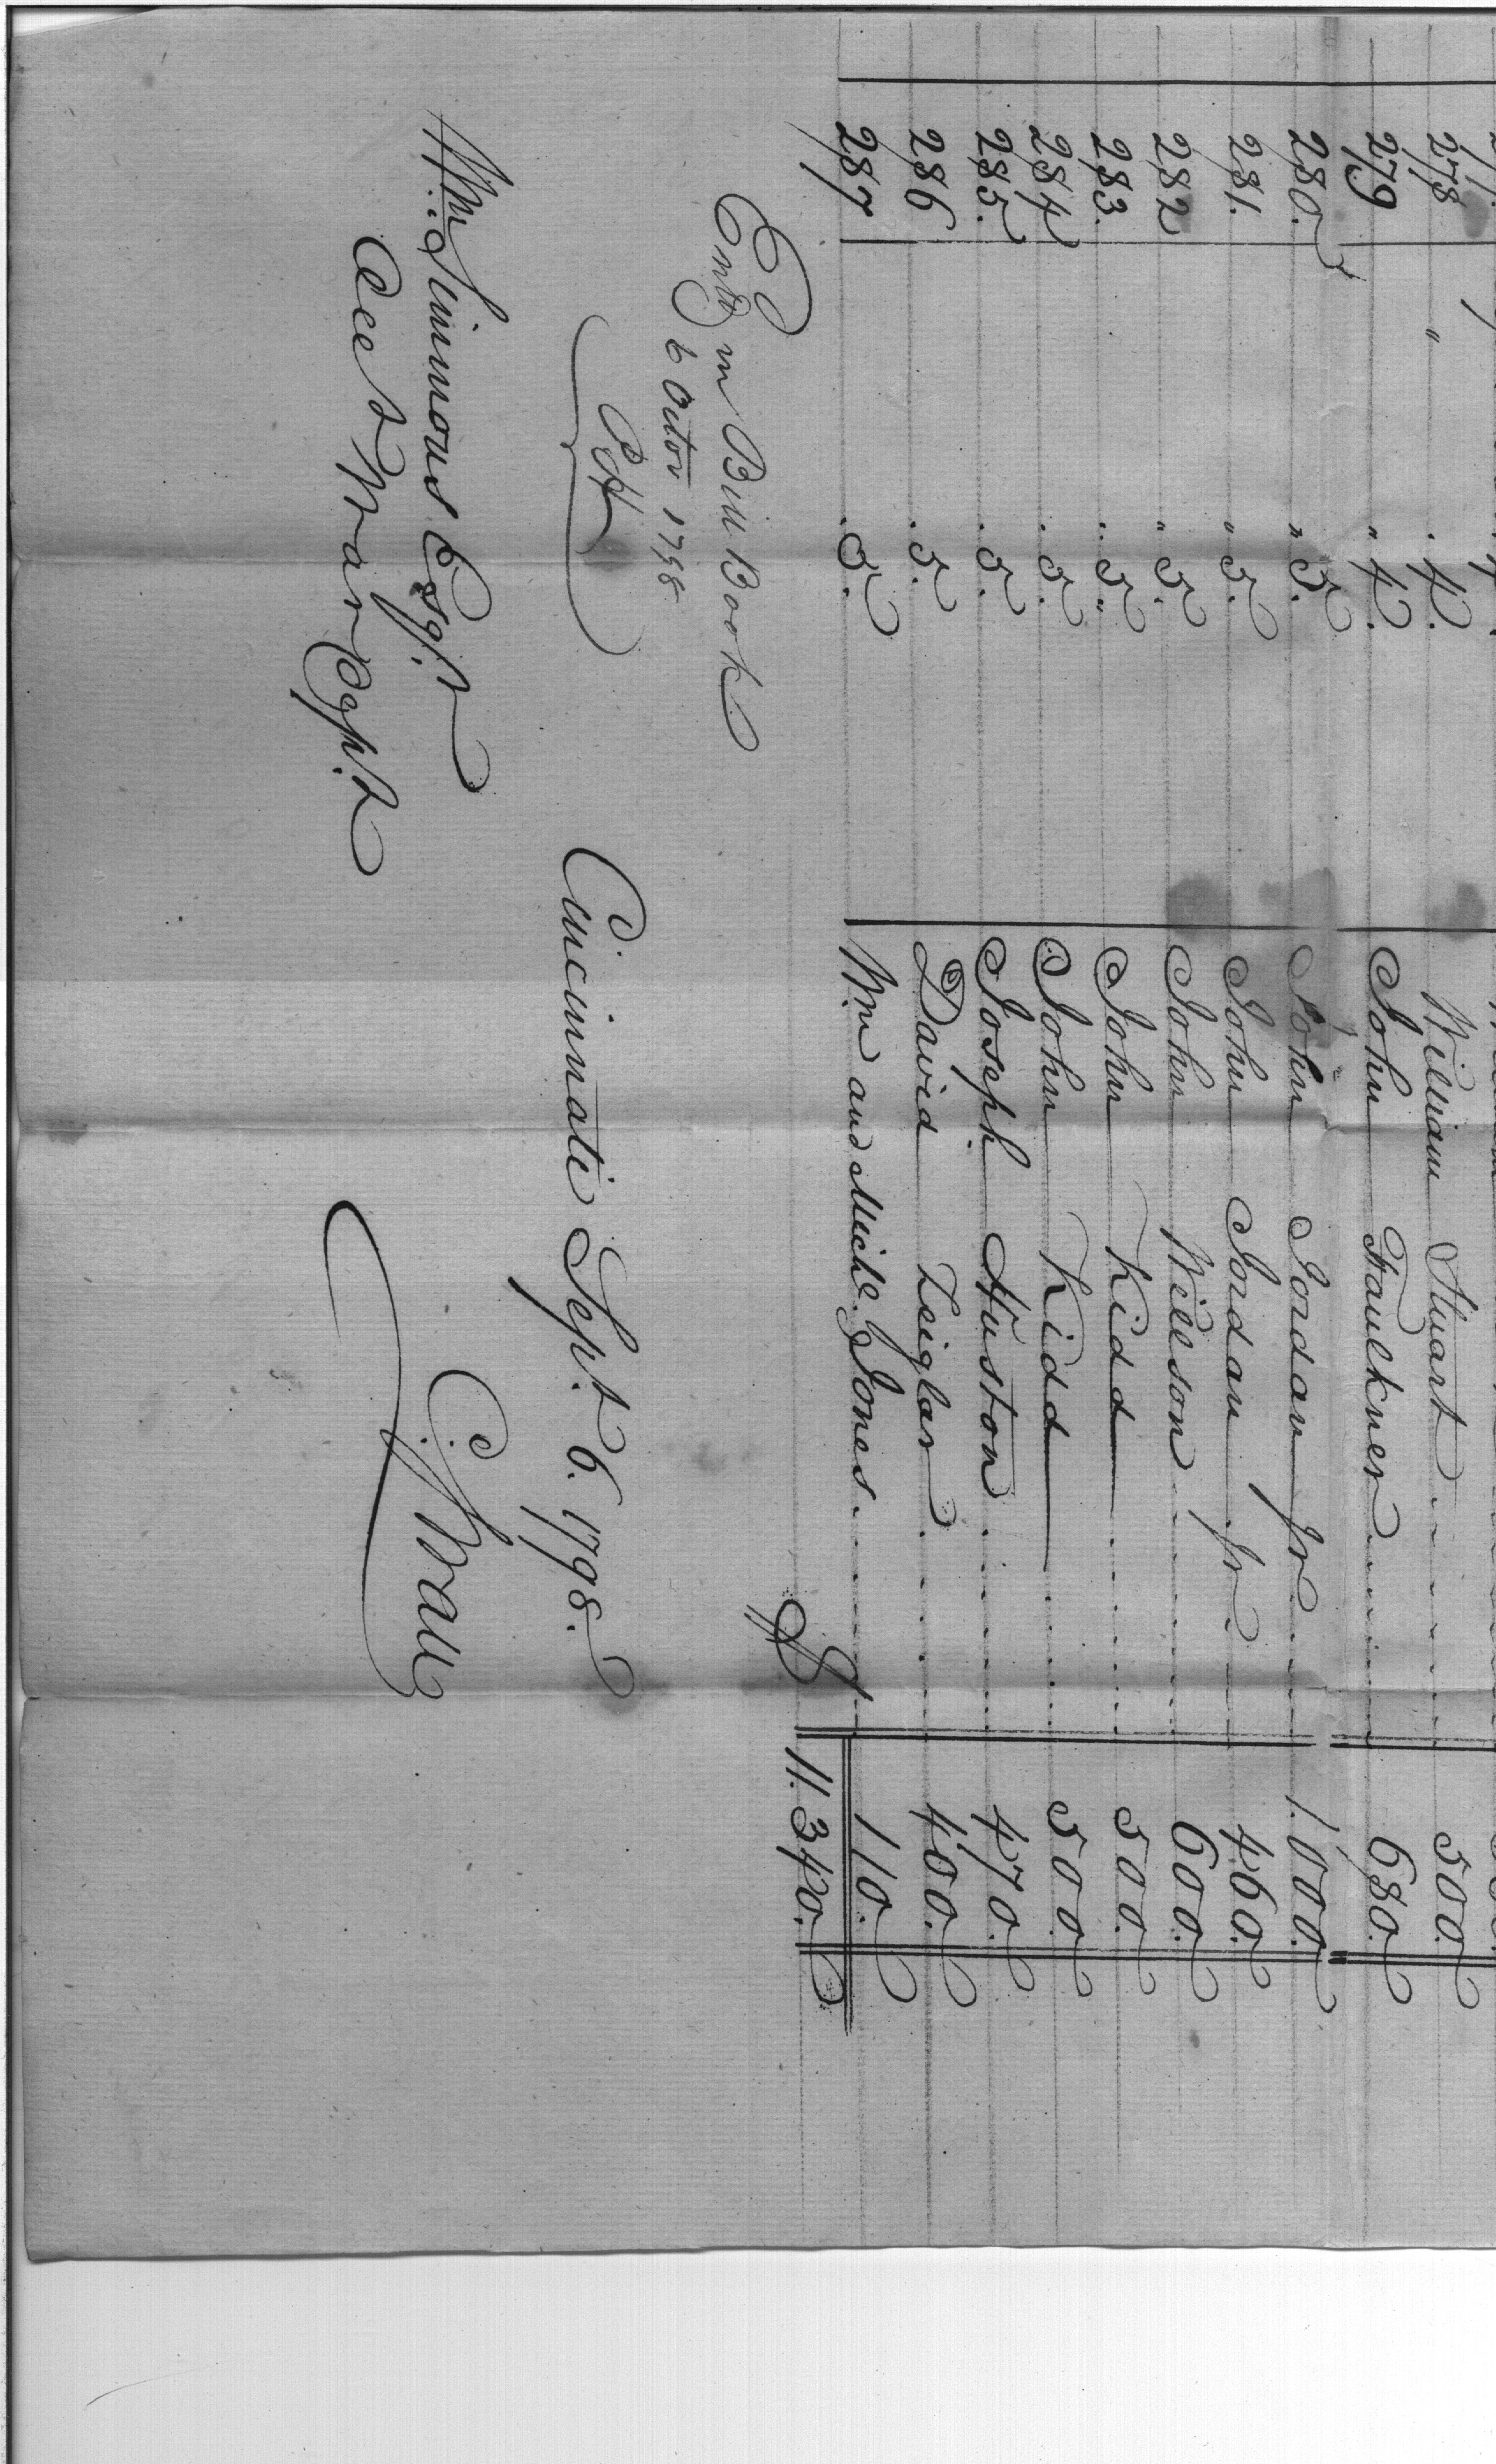 278 " . 4. William Stuart . . . . 500.
279 " 4. John Faulkner . . . . 680.
280. " 5. John Jordan Jr . . . . 1.000.
281. " 5. John Jordan Jr . . . . 460.
282 " 5. John Willson . . . . 600.
283. . 5. John Kidd . . . . 500.
284 . 5. John Kidd . . . . 500
285. . 5. Joseph Huston . . . . 470.
286 . 5. David Zeiglar . . . . 400.
287 . 5. Wm and Michl. Jones . . . . 110.
$ 11.340.
Entd in Bill Book
6 Octor 1798
Cincinnati Sept. 6. 1798.
Wm. Simmons Esqr.
Acct War Dept.
C. Swan